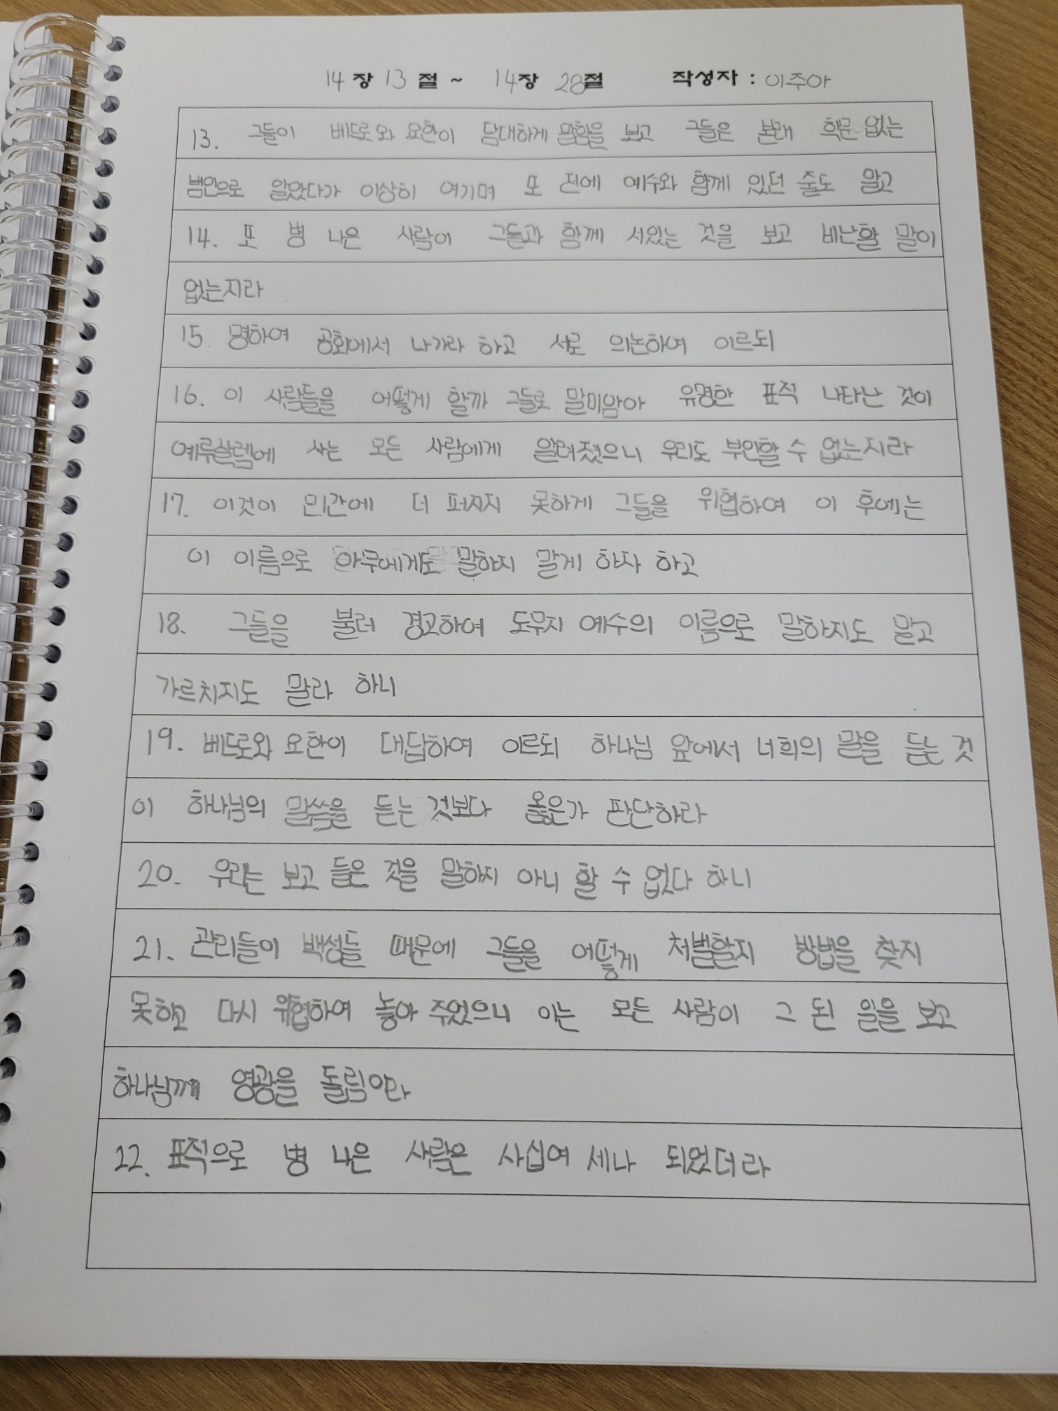 14 장 13 절 ~ 14장 28절 작성자 : 이주아
13. 그들이 베드로와 요한이 담대하게 말함을 보고 그들은 본래 학문 없는
범인으로 알았다가 이상히 여기며 또 전에 예수와 함께 있던 줄도 알고
14. 또 병 나은 사람이 그들과 함께 서있는 것을 보고 비난할 말이
없는지라
15. 명하여 공회에서 나가라 하고 서로 의논하여 이르되
16. 이 사람들을 어떻게 할까 그들로 말미암아 유명한 표적 나타난 것이
예루살렘에 사는 모든 사람에게 알려졌으니 우리도 부인할 수 없는지라
17. 이것이 민간에 더 퍼지지 못하게 그들을 위협하여 이 후에는
이 이름으로 아무에게도 말하지 말게 하자 하고
18. 그들을 불러 경고하여 도무지 예수의 이름으로 말하지도 말고
가르치지도 말라 하니
19. 베드로와 요한이 대답하여 이르되 하나님 앞에서 너희의 말을 듣는 것
이 하나님의 말씀을 듣는 것보다 옳은가 판단하라
20. 우리는 보고 들은 것을 말하지 아니 할 수 없다 하니
21. 관리들이 백성들 때문에 그들을 어떻게 처벌할지 방법을 찾지
못하고 다시 위협하여 놓아 주었으니 이는 모든 사람이 그 된 일을 보고
하나님께 영광을 돌림이라
22. 표적으로 병 나은 사람은 사십여 세나 되었더라